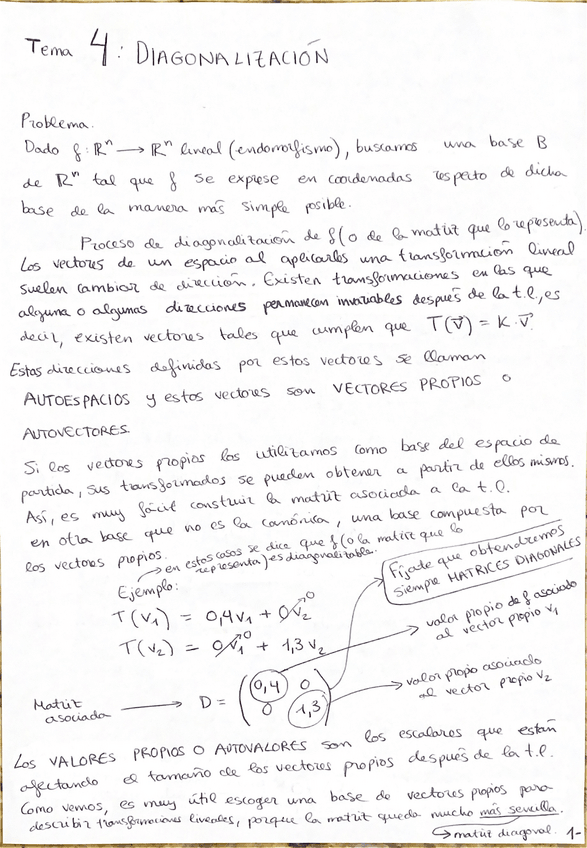 Tema 4: DIAGONALIZACIÓN
Problema.
Dado f: ℝⁿ ⟶ ℝⁿ lineal (endomorfismo), buscamos una base B
de ℝⁿ tal que f se exprese en coordenadas respecto de dicha
base de la manera más simple posible.
Proceso de diagonalización de f (o de la matriz que lo representa).
Los vectores de un espacio al aplicarlos una transformación lineal
suelen cambiar de dirección. Existen transformaciones en las que
alguna o algunas direcciones permanecen invariables después de la t.l., es
decir, existen vectores tales que cumplen que T(v⃗) = K·v⃗.
Estas direcciones definidas por estos vectores se llaman
AUTOESPACIOS y estos vectores son VECTORES PROPIOS o
AUTOVECTORES.
Si los vectores propios los utilizamos como base del espacio de
partida, sus transformados se pueden obtener a partir de ellos mismos.
Así, es muy fácil construir la matriz asociada a la t.l.
en otra base que no es la canónica, una base compuesta por
los vectores propios.
→ en estos casos se dice que f (o la matriz que lo
representa) es diagonalizable.
Ejemplo:
T(v₁) = 0,4v₁ + 0v₂ → 0
T(v₂) = 0v₁ → 0 + 1,3v₂
Fíjate que obtendremos
siempre MATRICES DIAGONALES
valor propio de f asociado
al vector propio v₁
valor propio asociado
al vector propio v₂
Matriz
asociada ⟶ D = (0,4 0
0 1,3)
Los VALORES PROPIOS O AUTOVALORES son los escalares que están
afectando el tamaño de los vectores propios después de la t.l.
Como vemos, es muy útil escoger una base de vectores propios para
describir transformaciones lineales, porque la matriz queda mucho más sencilla.
→ matriz diagonal. 1-